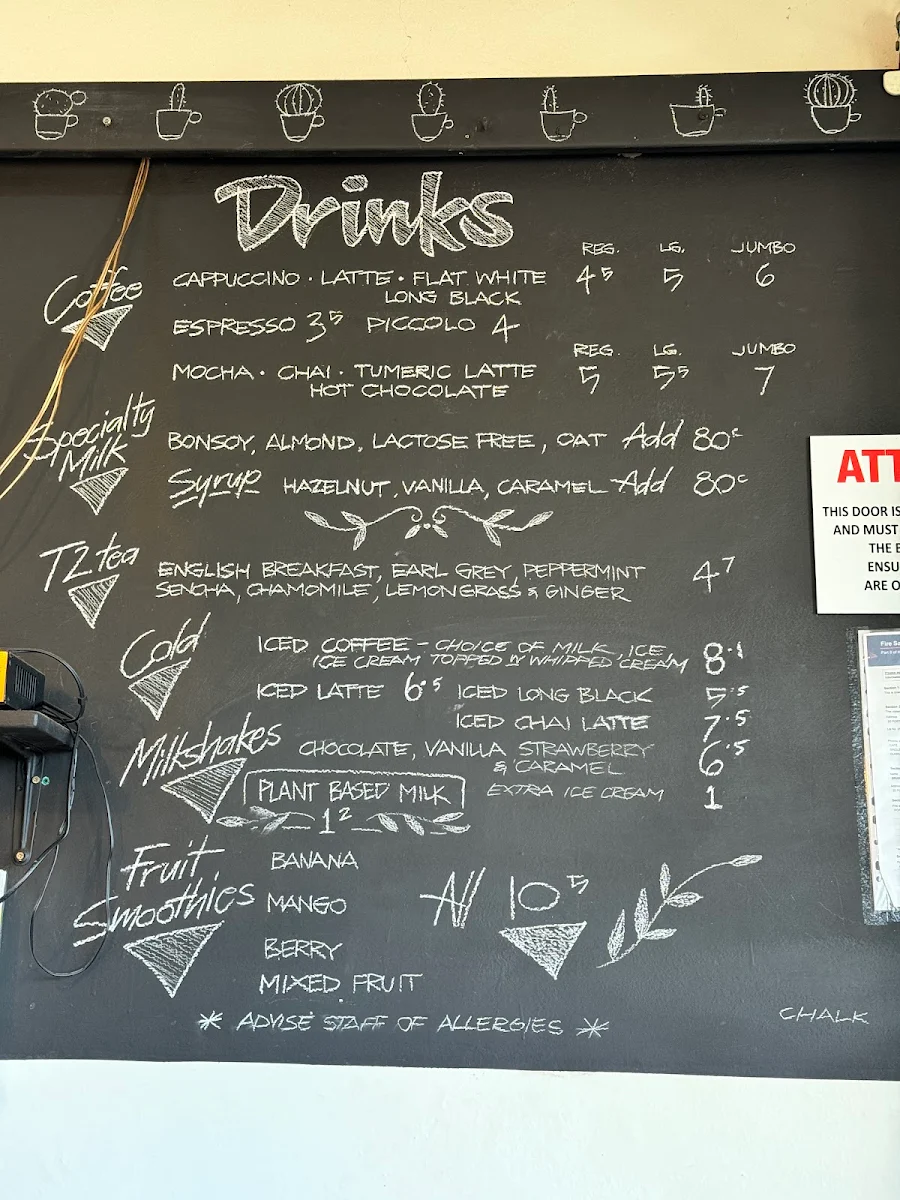 Drinks
REG. LG. JUMBO
Coffee
CAPPUCCINO · LATTE · FLAT WHITE 4⁵ 5 6
LONG BLACK
ESPRESSO 3⁵ PICCOLO 4
REG. LG. JUMBO
MOCHA · CHAI · TUMERIC LATTE 5 5⁵ 7
HOT CHOCOLATE
Specialty
Milk
BONSOY, ALMOND, LACTOSE FREE, OAT Add 80c
Syrup HAZELNUT, VANILLA, CARAMEL Add 80c
T2 tea
ENGLISH BREAKFAST, EARL GREY, PEPPERMINT 4⁷
SENCHA, CHAMOMILE, LEMONGRASS & GINGER
Cold
ICED COFFEE - CHOICE OF MILK, ICE
ICE CREAM TOPPED W WHIPPED CREAM 8
ICED LATTE 6·⁵ ICED LONG BLACK 5·⁵
ICED CHAI LATTE 7·⁵
Milkshakes
CHOCOLATE, VANILLA STRAWBERRY 6·⁵
& CARAMEL
PLANT BASED MILK EXTRA ICE CREAM 1
1²
Fruit
Smoothies
BANANA
MANGO
BERRY
MIXED FRUIT
All 10⁵
* ADVISE STAFF OF ALLERGIES *
CHALK
ATT
THIS DOOR IS
AND MUST
THE
ENSU
ARE O